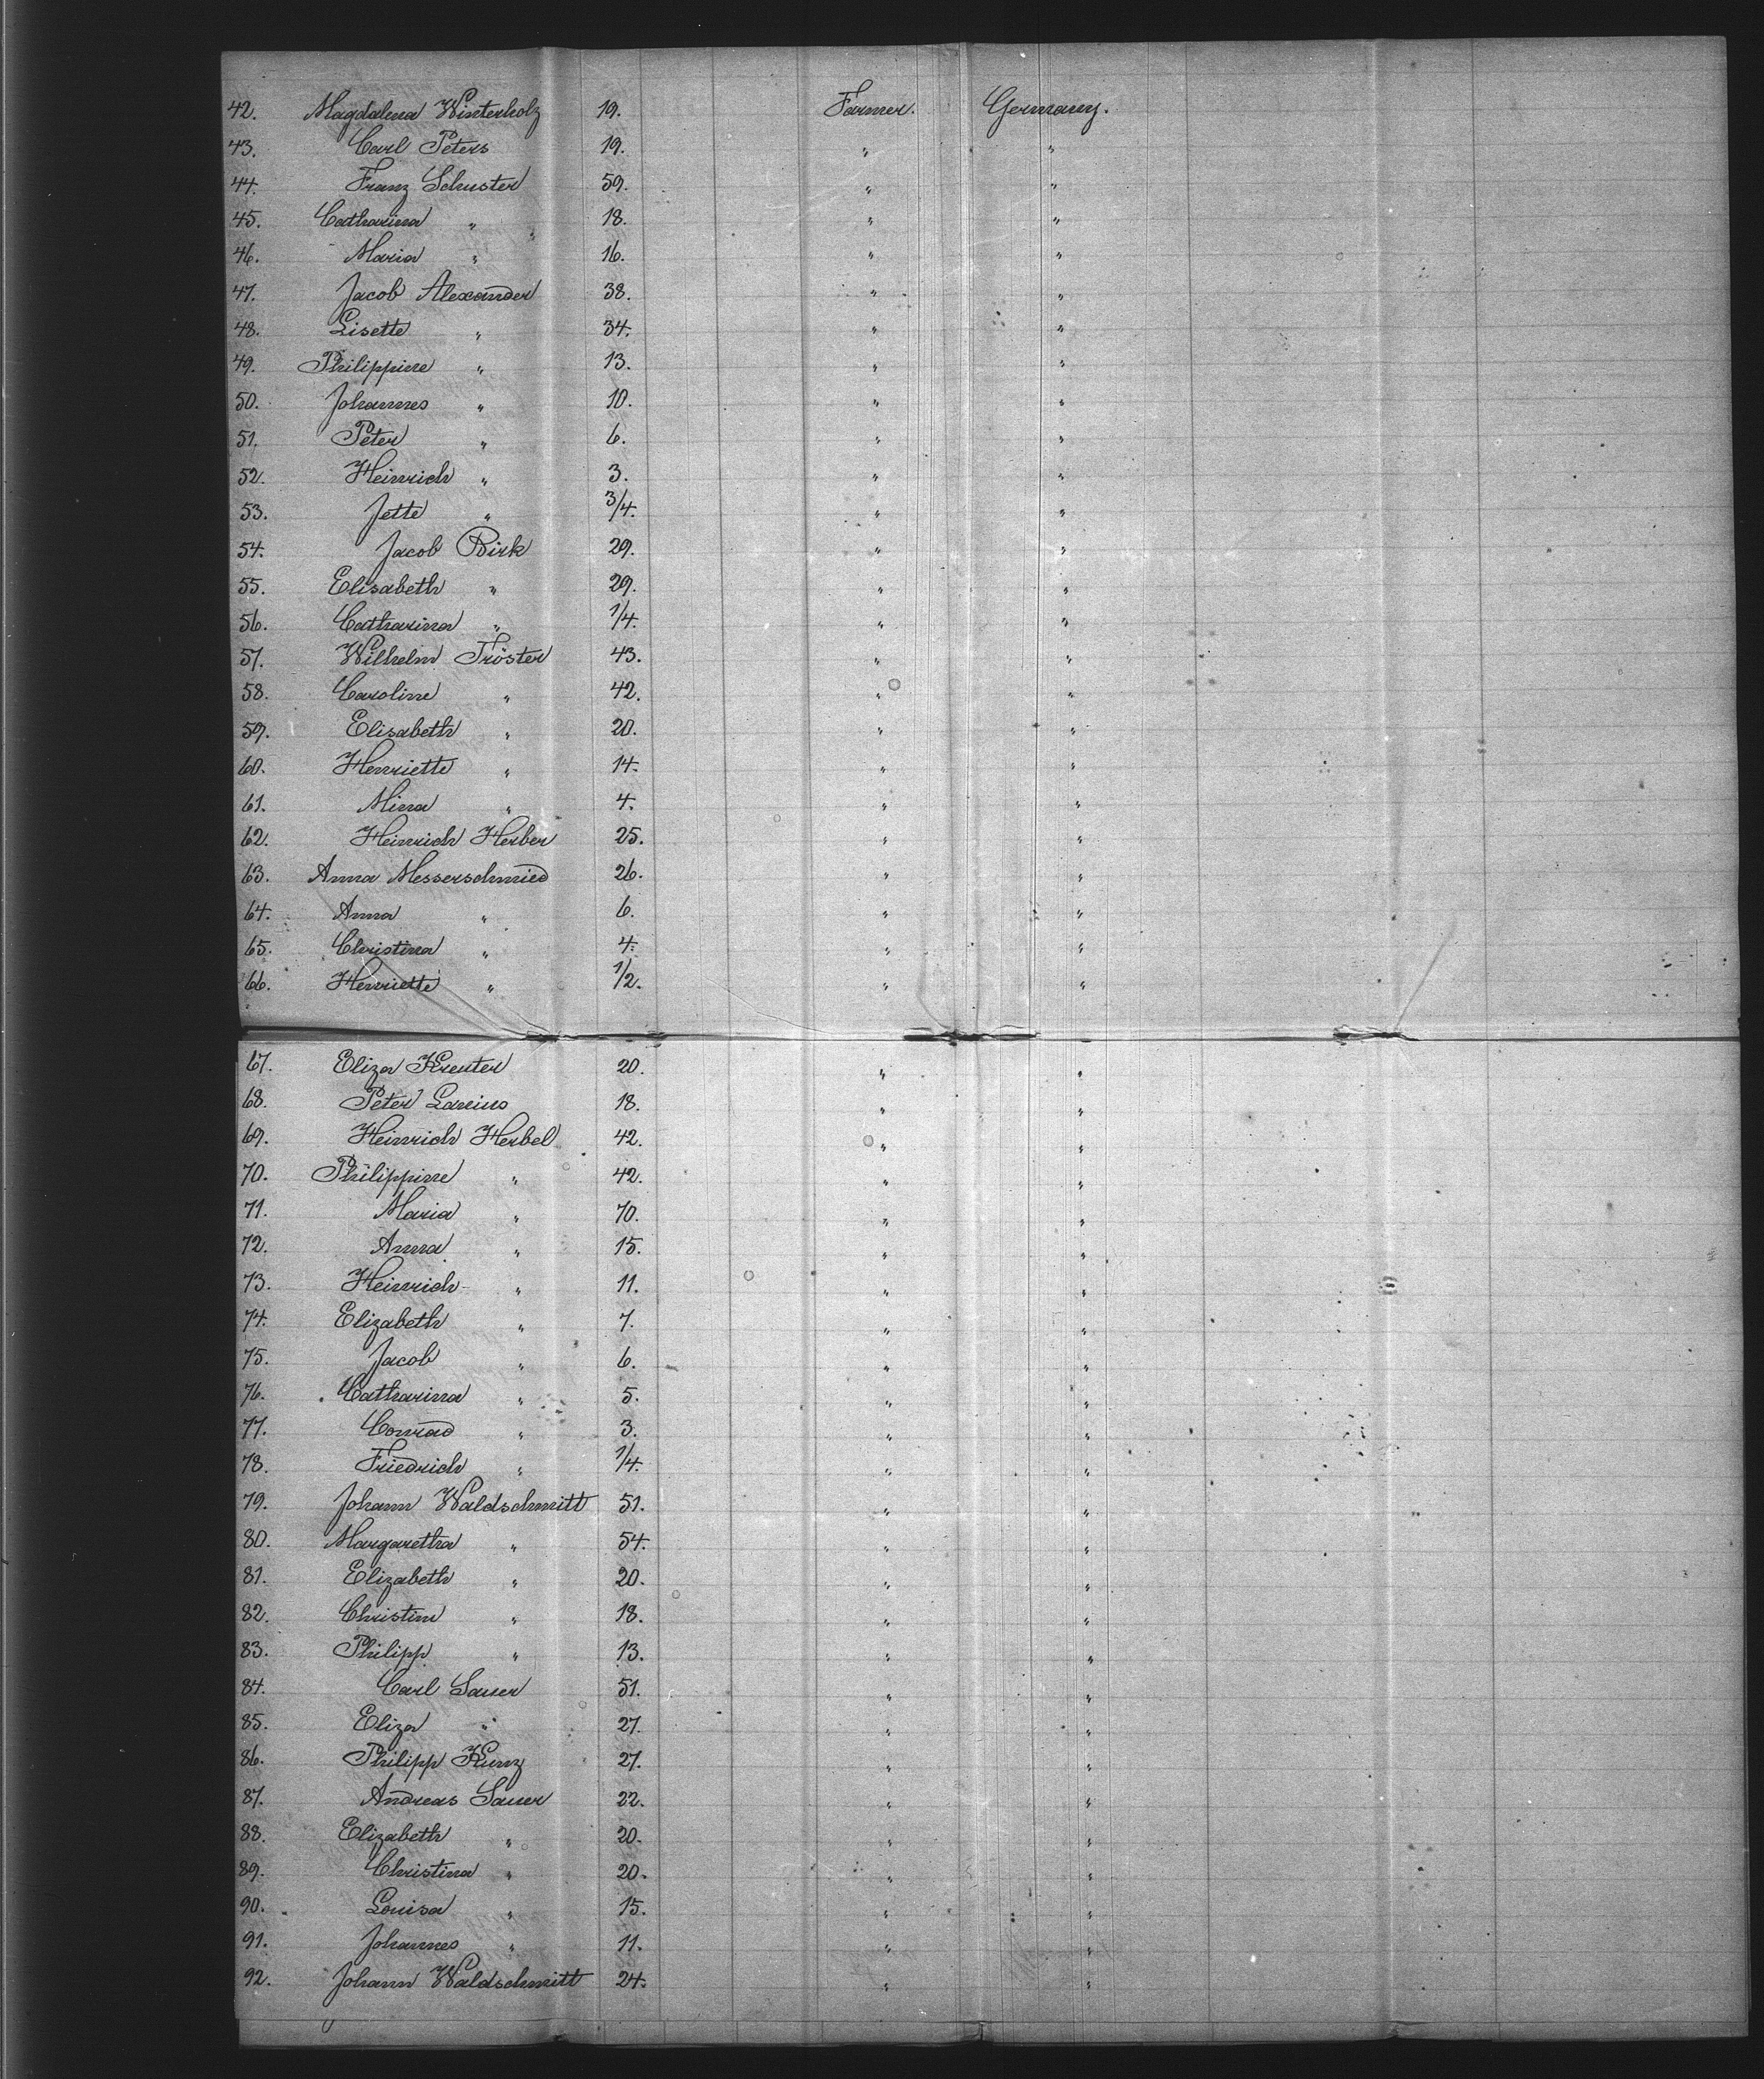 42. Magdalena Winterholz 19. Farmer. Germany.
43. Carl Peters 19. " "
44. Franz Schuster 59. " "
45. Catharina " 18. " "
46. Maria " 16. " "
47. Jacob Alexander 38. " "
48. Lisette " 34. " "
49. Philippine " 13. " "
50. Johannes " 10. " "
51. Peter " 6. " "
52. Heinrich " 3. " "
53. Jette " 3/4. " "
54. Jacob Birk 29. " "
55. Elisabeth " 29. " "
56. Catharina " 1/4. " "
57. Wilhelm Tröster 43. " "
58. Caroline " 42. " "
59. Elisabeth " 20. " "
60. Henriette " 14. " "
61. Mina " 4. " "
62. Heinrich Herber 25. " "
63. Anna Messerschmied 26. " "
64. Anna " 6. " "
65. Christina " 4. " "
66. Henriette " 1/2. " "
67. Eliza Kreuter 20. " "
68. Peter Lareius 18. " "
69. Heinrich Herbel 42. " "
70. Philippine " 42. " "
71. Maria " 70. " "
72. Anna " 15. " "
73. Heinrich " 11. " "
74. Elizabeth " 7. " "
75. Jacob " 6. " "
76. Catharina " 5. " "
77. Conrad " 3. " "
78. Friedrich " 1/4. " "
79. Johann Waldschmitt 51. " "
80. Margaretha " 54. " "
81. Elizabeth " 20. " "
82. Christine " 18. " "
83. Philipp " 13. " "
84. Carl Sauer 51. " "
85. Eliza " 27. " "
86. Philipp Kunz 27. " "
87. Andreas Sauer 22. " "
88. Elizabeth " 20. " "
89. Christina " 20. " "
90. Louisa " 15. " "
91. Johannes " 11. " "
92. Johann Waldschmitt 24. " "